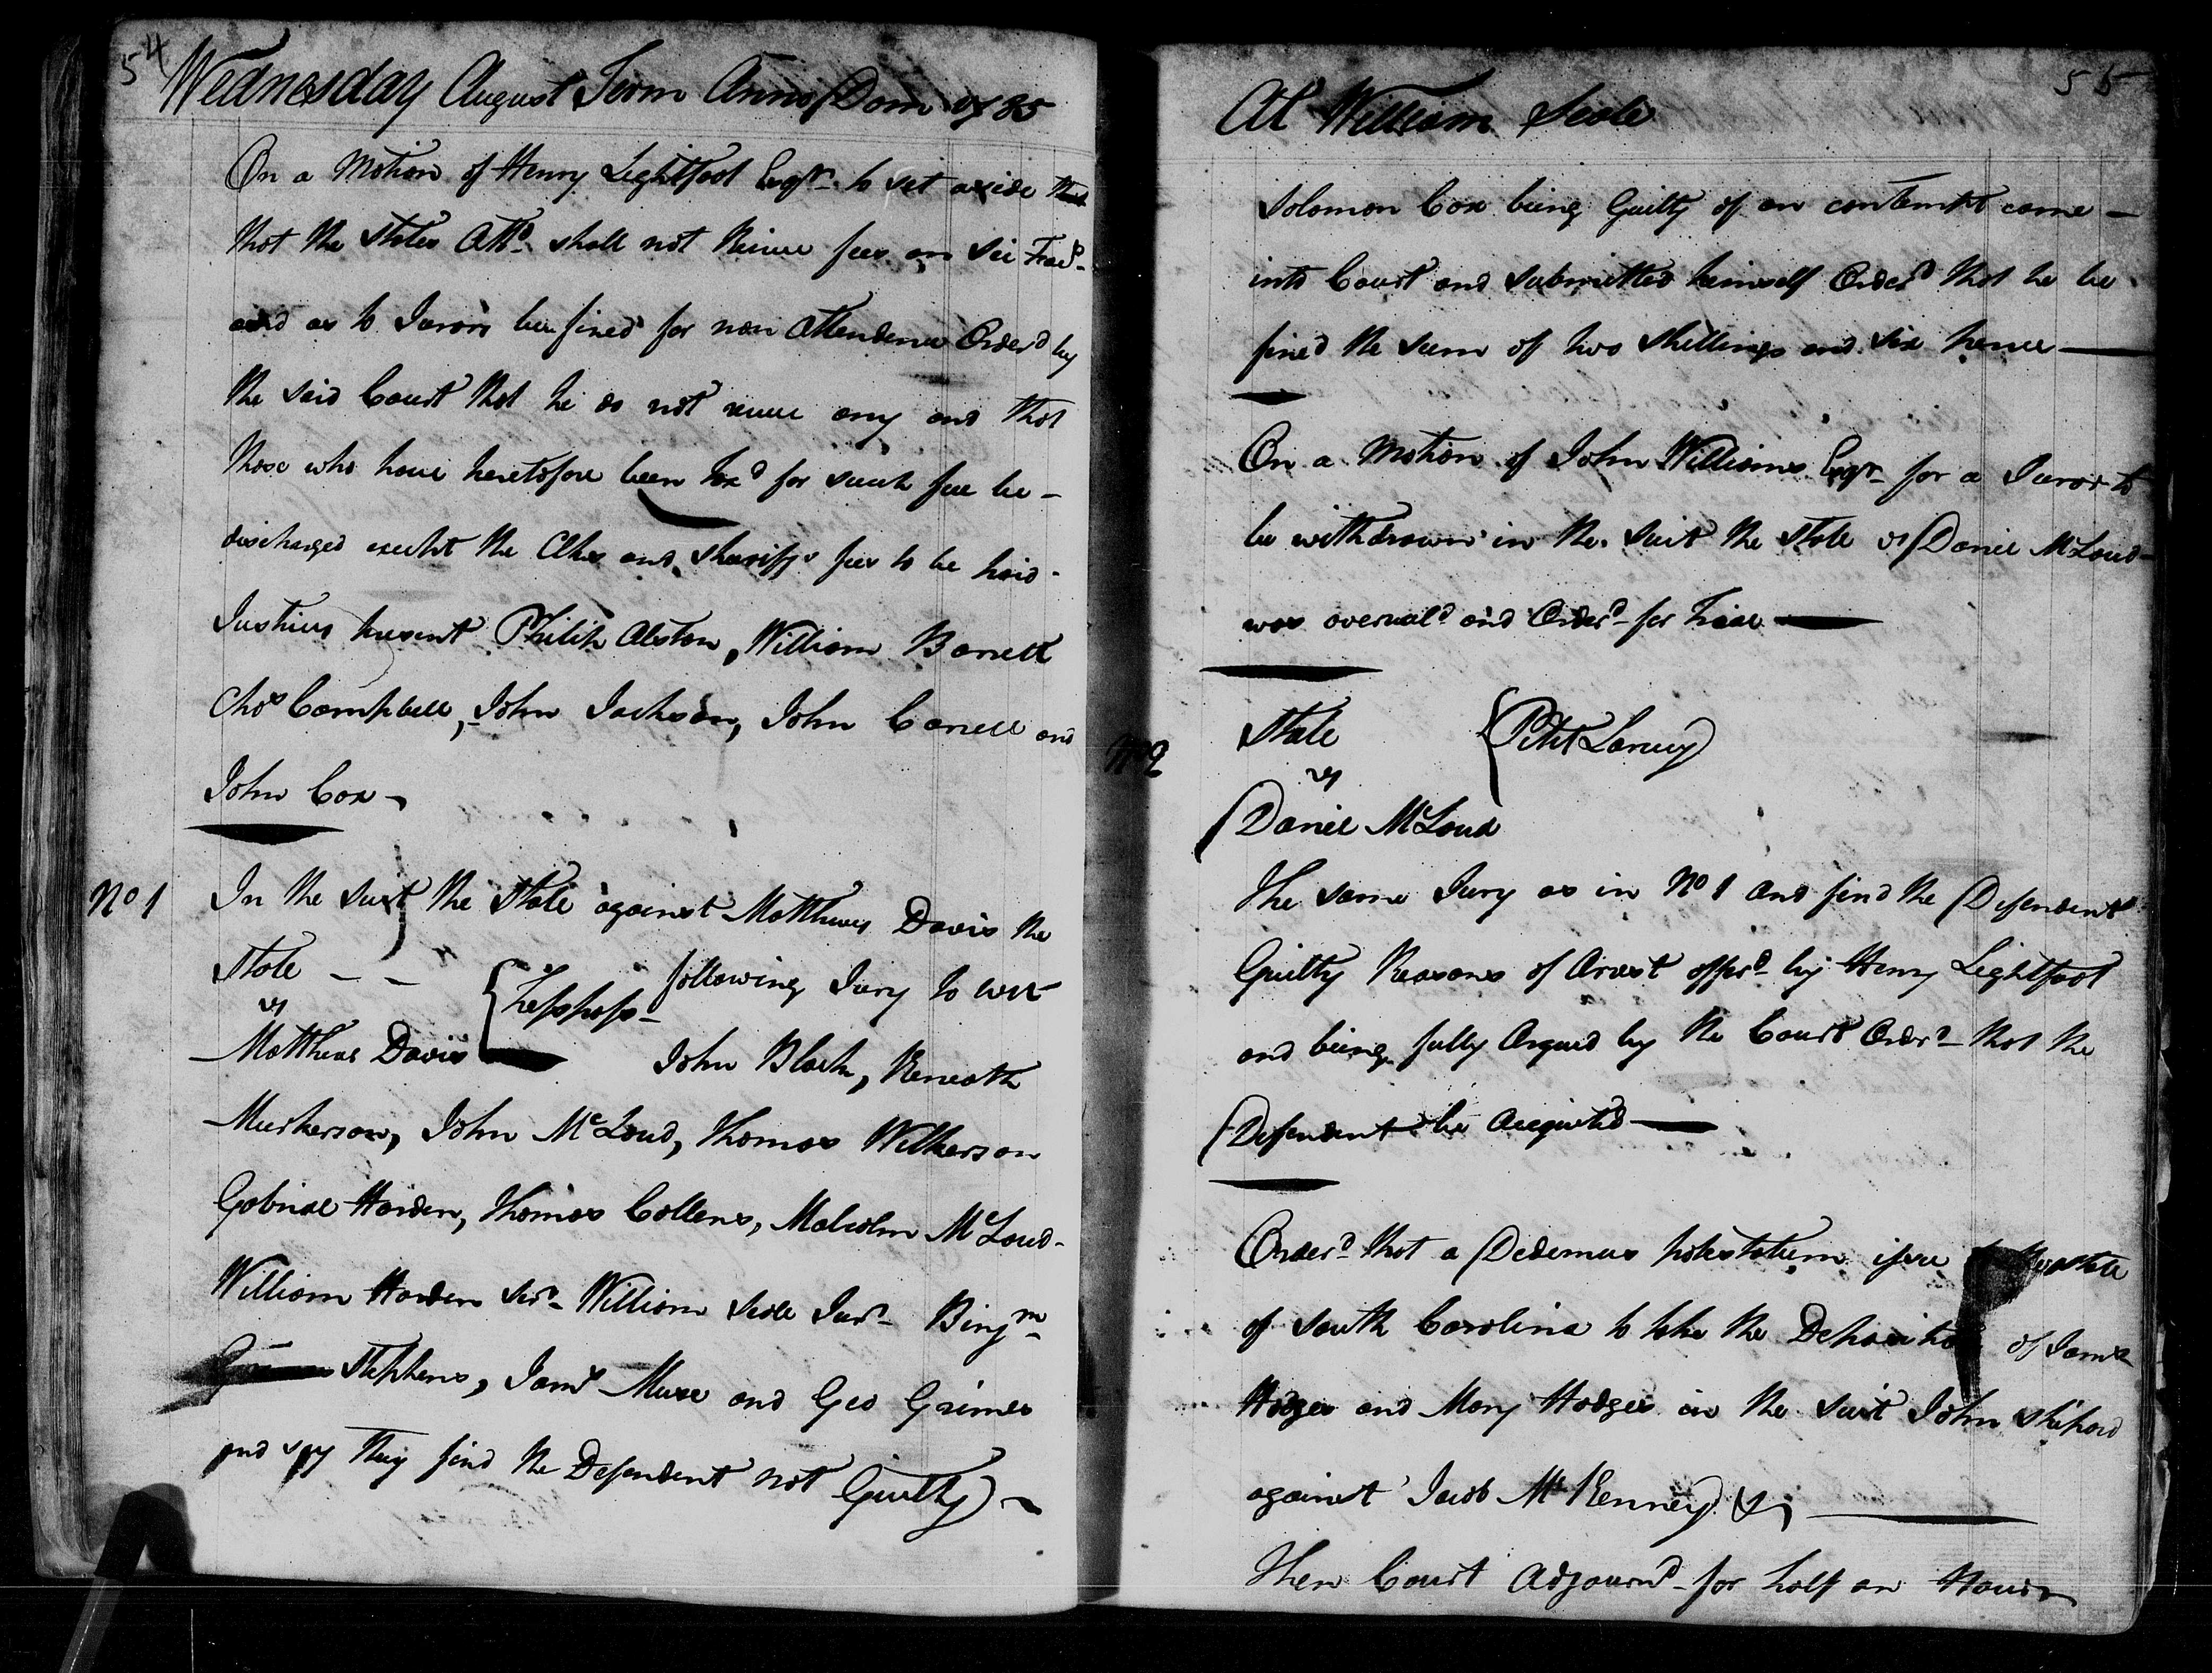 54
Wednesday August Term Anno Dom 1785
On a Motion of Henry Lightfoot Esqr. to set aside
that the States Atto. shall not Receive fees on Sci Facs.
and as to Jurors been fined for non attendence Order'd by
the said Court that he do not receve any and that
those who have heretofore been tax'd for such fee be -
discharged except the Clks and Sheriffs fees to be paid -
Justices present Philip Alston, William Barrett
Chos Campbell, John Jackson, John Carrell and
John Cox -
No 1 In the suit the State against Matthew Davis the
State - - following Jury to wit
vs { Tresspass -
Matthew Davis John Black, Keneath
Murkerson, John McLoud, Thomas Wilkerson
Gabriel Harden, Thomas Collens, Malcolm McLoud -
William Harden Senr. William Seale Junr. Binjm
Stephens, Jams Muse and Geo Grimes
and say they find the Defendent not Guilty -
55
At William Seale
Solomon Cox being Guilty of an contempt came -
into Court and submitted himself Order'd that he be
fined the sum of two shillings and six pence -
On a Motion of John Williams Esqr. for a Juror to
be withdrawn in the suit the State vs Daniel McLoud -
was overuald and Order'd for trial -
No 2 State { Petit Larceny
vs
Daniel McLoud
The same Jury as in No 1 and find the Defendent
Guilty Reasons of Arest offerd by Henry Lightfoot
and being fully Argued by the Court Ordrd that the
Defendent be Acquited -
Order'd that a Dedemus potestatum issue state
of South Carolina to take the Deposition of James
Hodges and Mary Hodges in the suit John Shepard
against Jacob McKenney &c
Then Court Adjournd for half an Hour